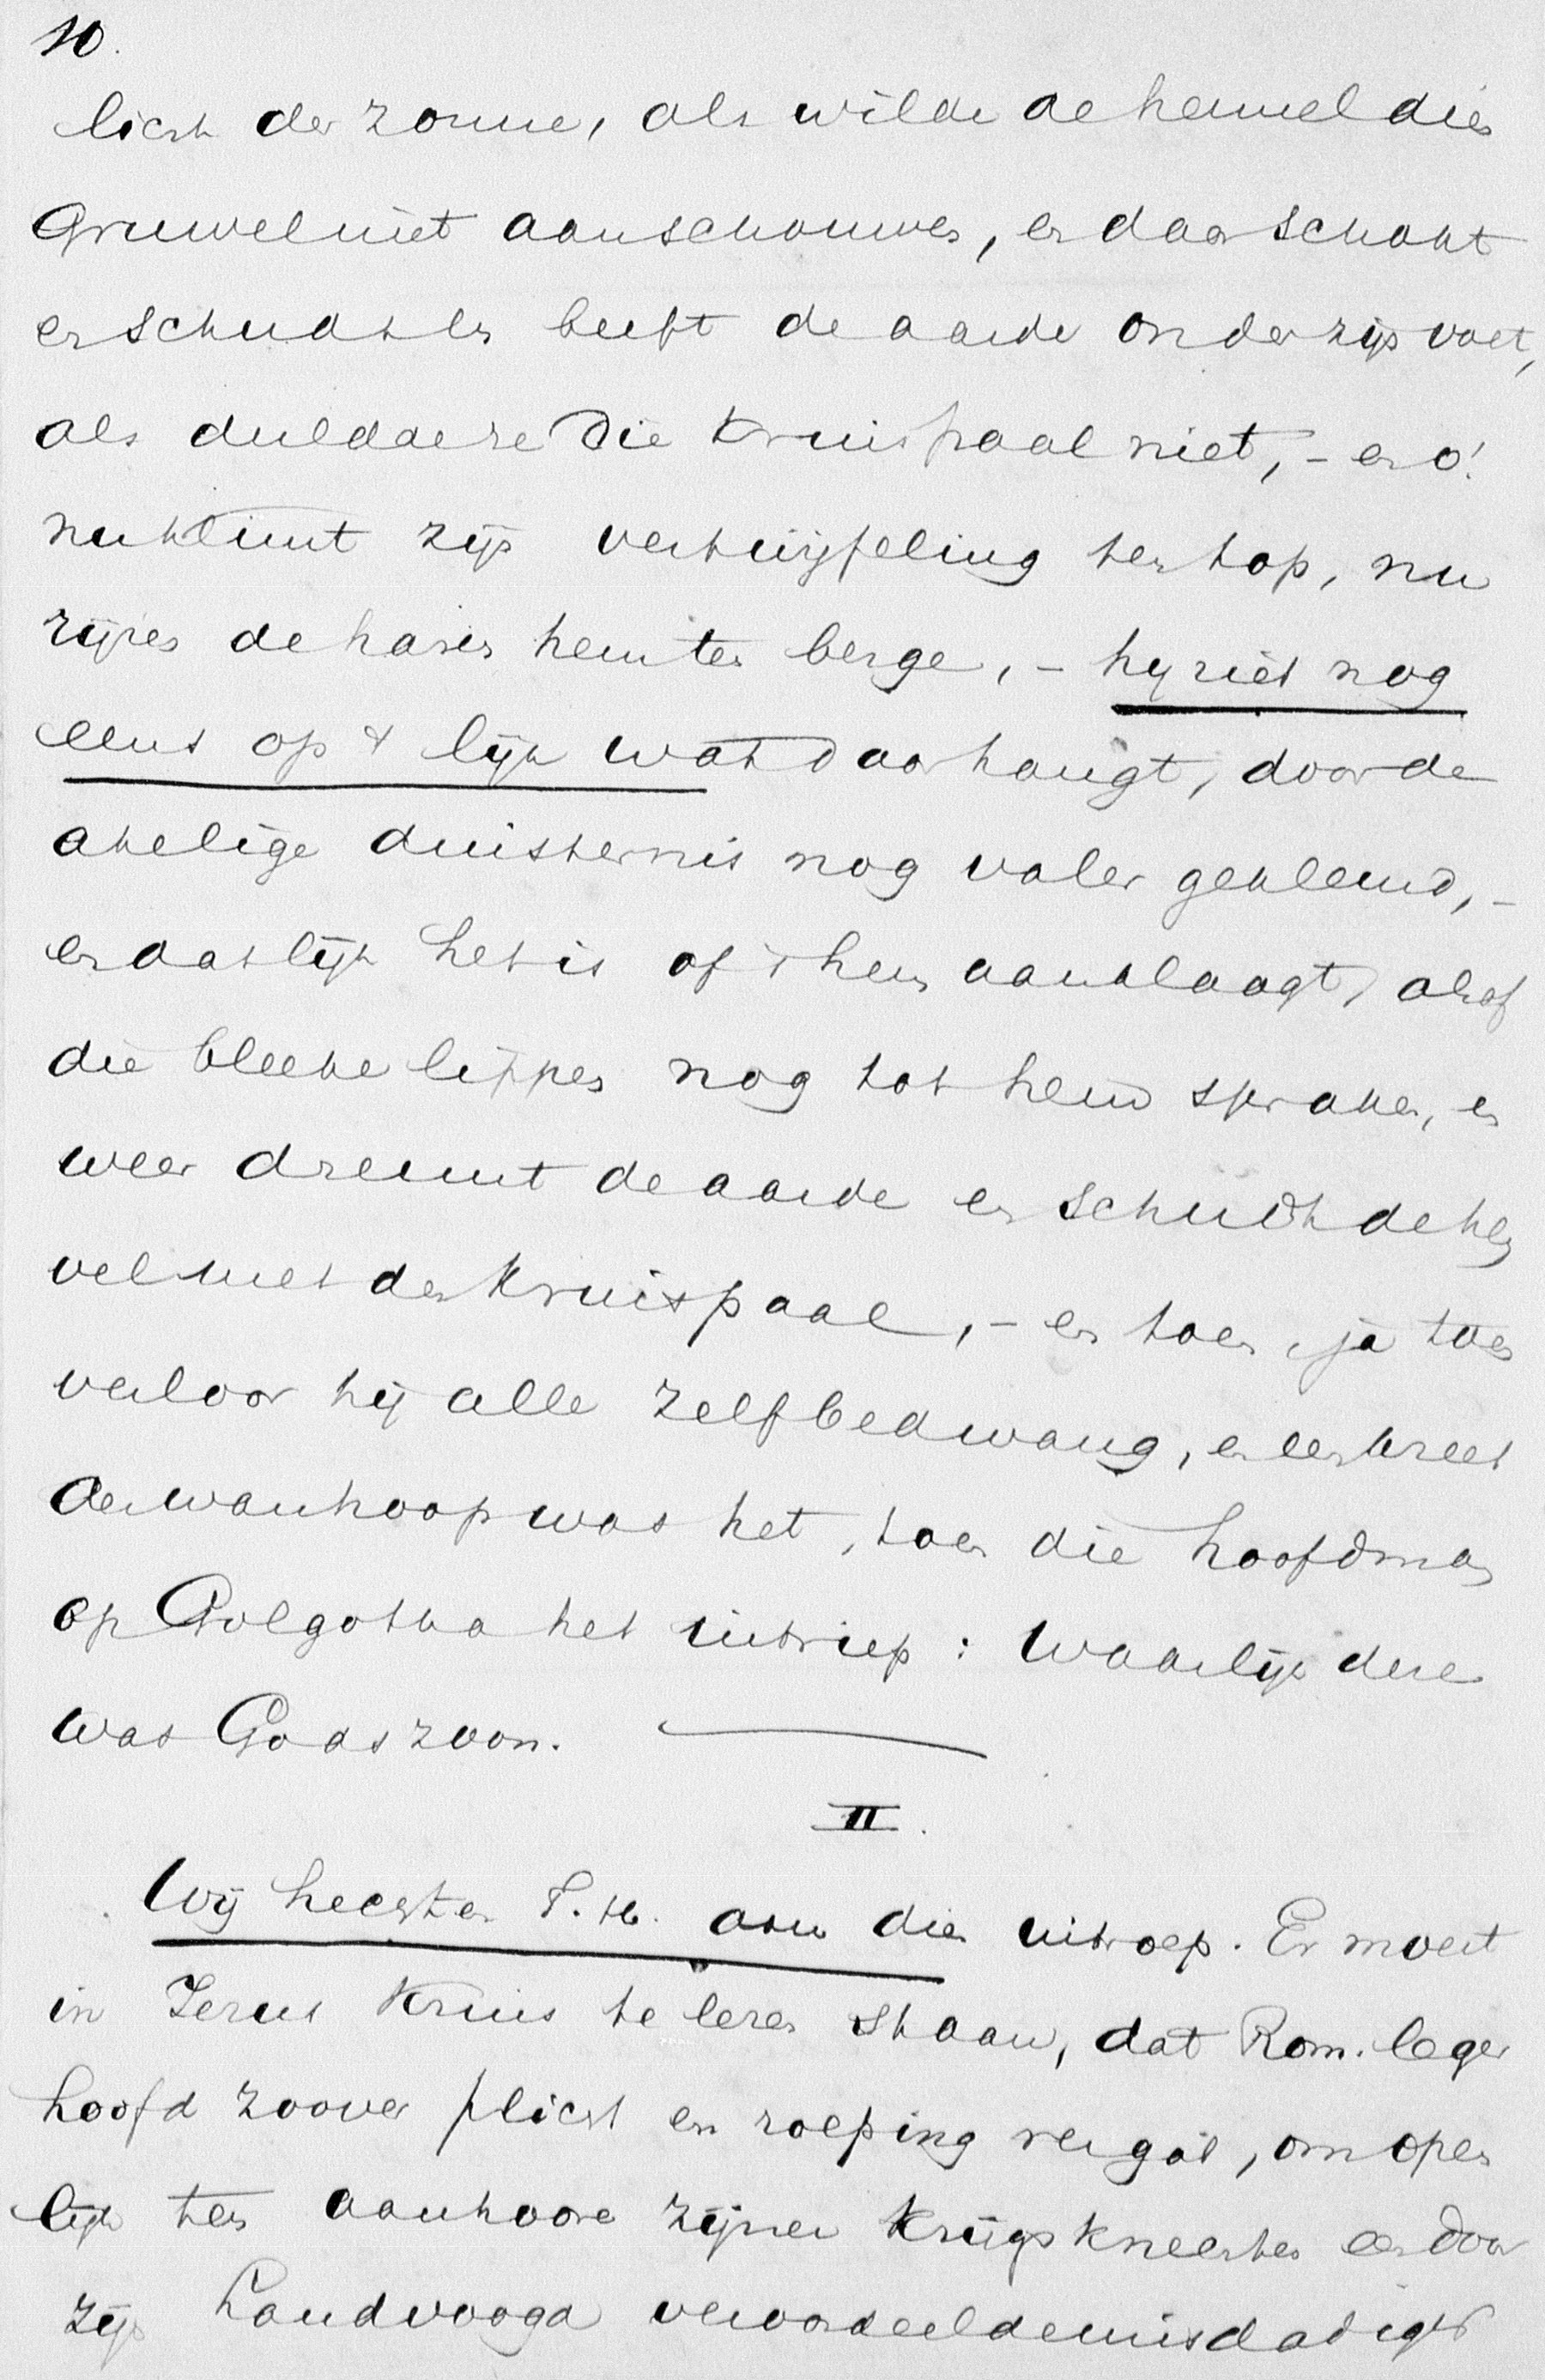 10.
licht der zonne, als wilde de hemel dien
gruwel niet aanschouwen, en daar schokt
en schudt en beeft de aarde onder zijn voet,
als duldde ze die kruispaal niet, - en o!
nu klimt zijn vertwijfeling ten top, nu
rijzen de haren hem te berge, - hij ziet nog
eens op 't lijk wat daar hangt, door de
akelige duisternis nog valer gekleurd, -
en dat lijk het is of 't hem aanklaagt, alsof
die bleeke lippen nog tot hem spraken, en
weer dreunt de aarde en schudt de heu
vel met den kruispaal, - en toen, ja toen
verloor hij alle zelfbedwang, en een kreet
der wanhoop was het, toen die hoofdman
op Golgotha het uitriep: waarlijk deze
was Gods zoon.
II.
Wij hechten T.H. aan dien uitroep. Er moest
in Jezus kruis te lezen staan, dat Rom. leger
hoofd zoover plicht en roeping vergat, om open
lijk ten aanhoore zijner krijgsknechten een door
zijn Landvoogd veroordeelden misdadiger